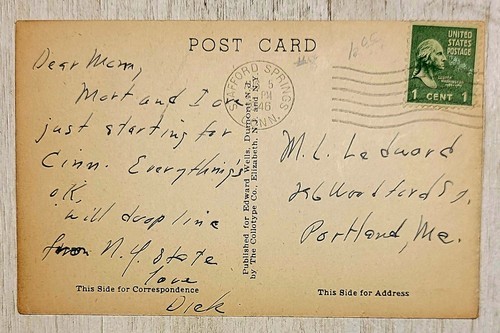 POST CARD
Dear Mom,
Mort and I are
just starting for
Cinn. Everything's
o.K,
will drop line
from N.Y. State
love
Dick
This Side for Correspondence
Published for Edward Wells, Dumont N.J.
by The Collotype Co., Elizabeth, N.J. and N.Y.
STAFFORD SPRINGS,
CONN.
5
UNITED
STATES
POSTAGE
1 CENT 1
M. L. Ledward
296 Woodford St.
Portland, Me.
This Side for Address